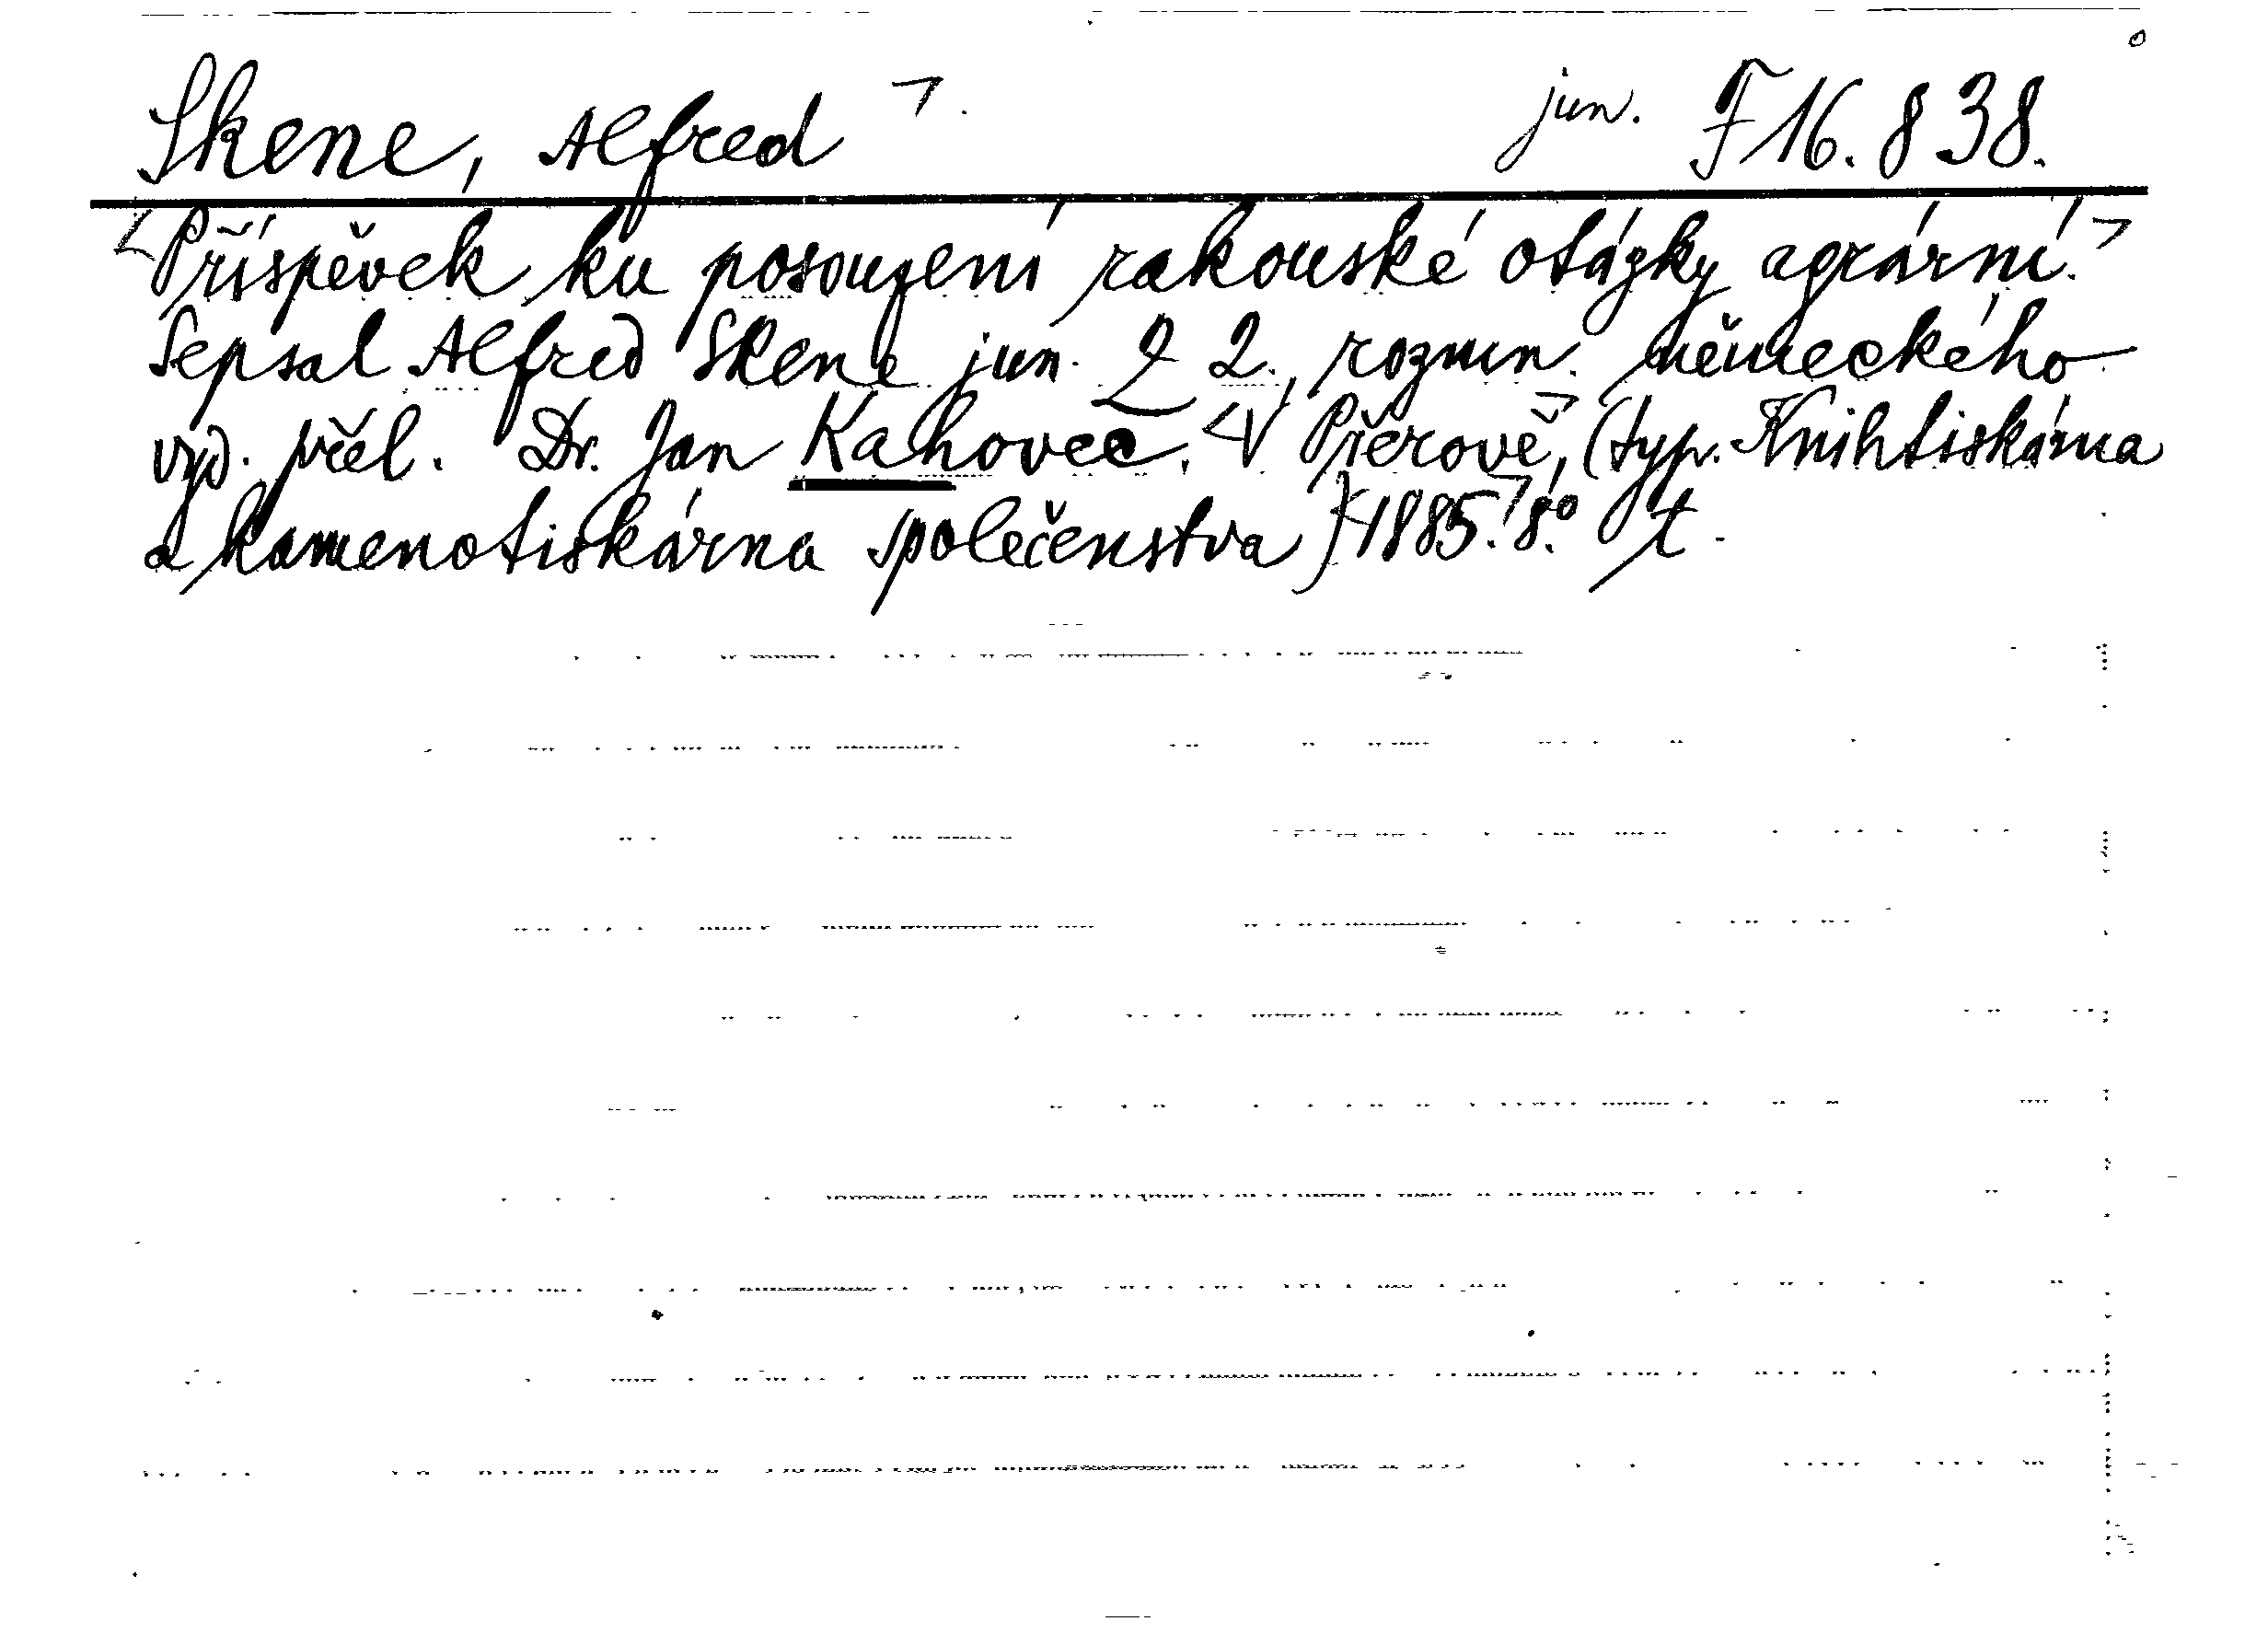 Skene, Alfred jun. F 16.838.
Příspěvek ku posouzení rakouské otázky agrární.
Sepsal Alfred Skene jun. Z 2. rozmn. německého
vyd. přel. Dr. Jan Kahovec. V Přerově, (typ. Knihtiskárna
a kamenotiskárna společenstva) 1885. 8.° t.